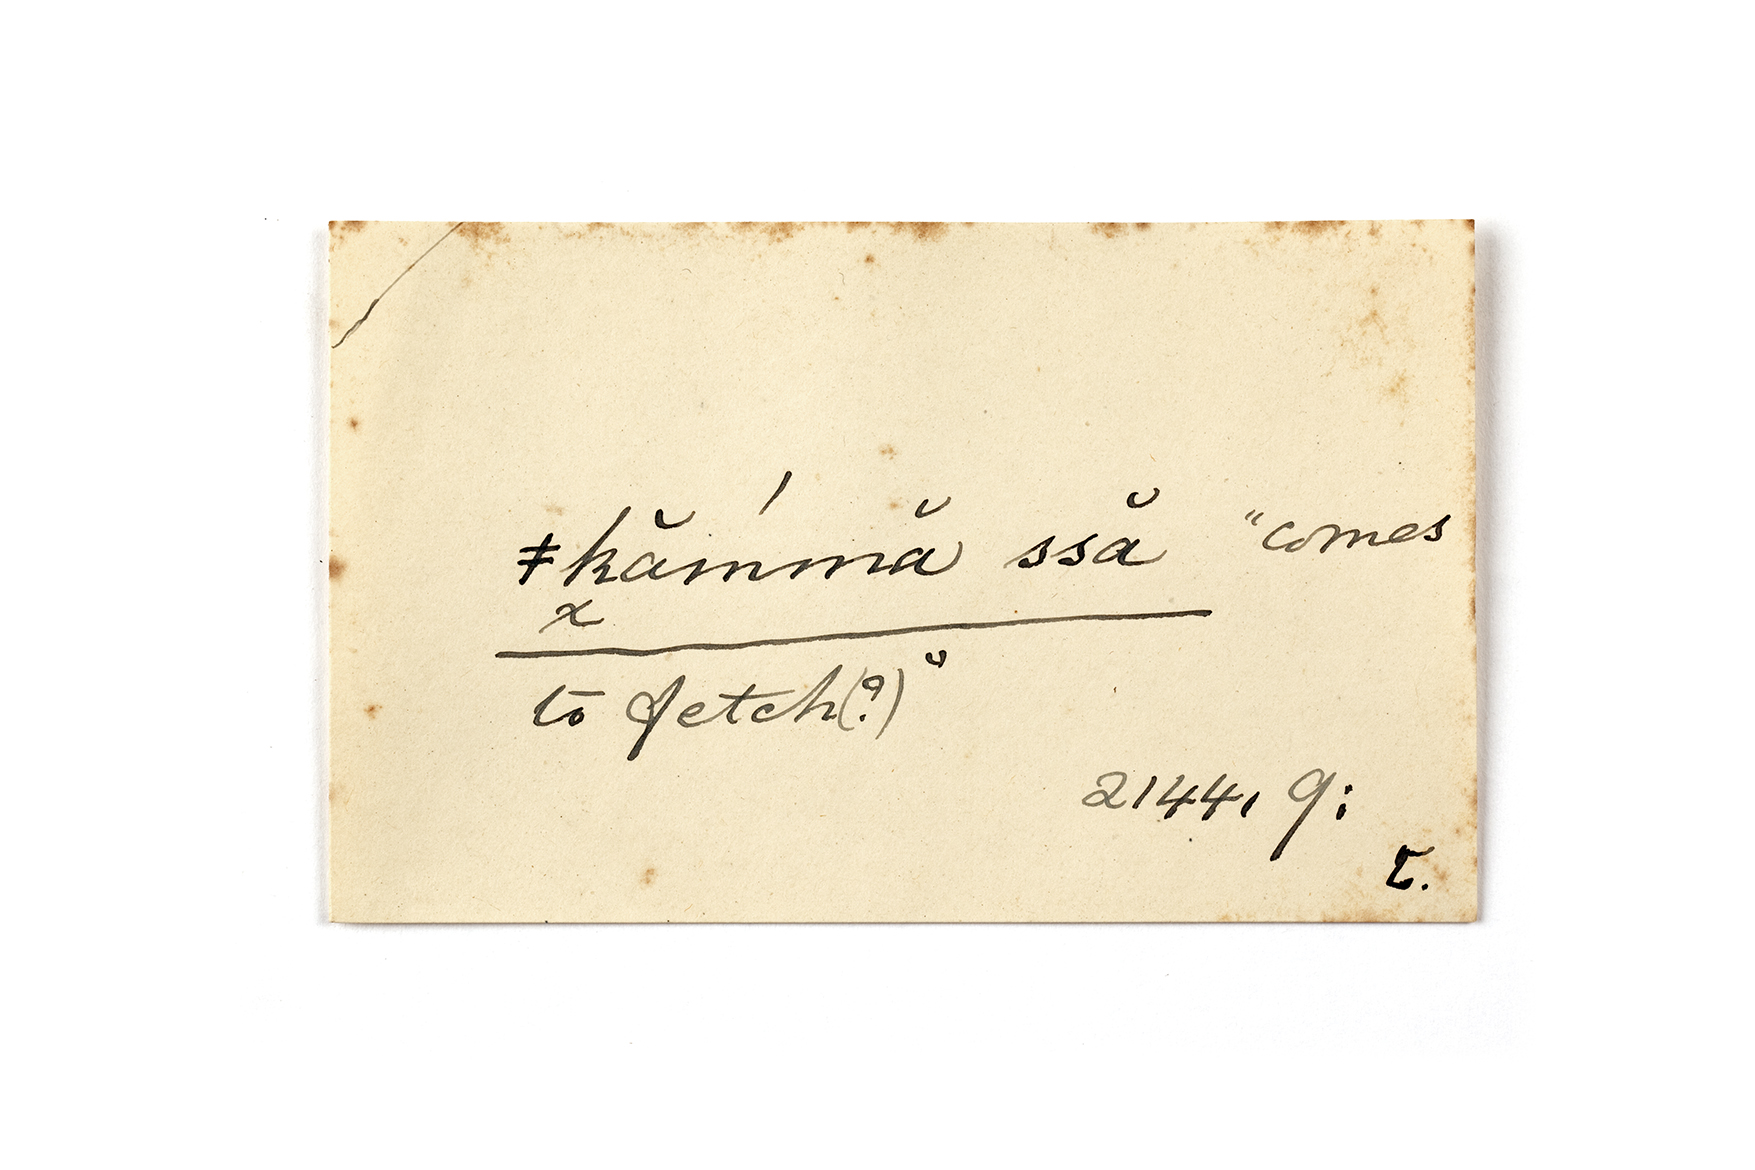 ǂkắmmă ssă "comes
x
to fetch(?)"
2144, 9;
T.